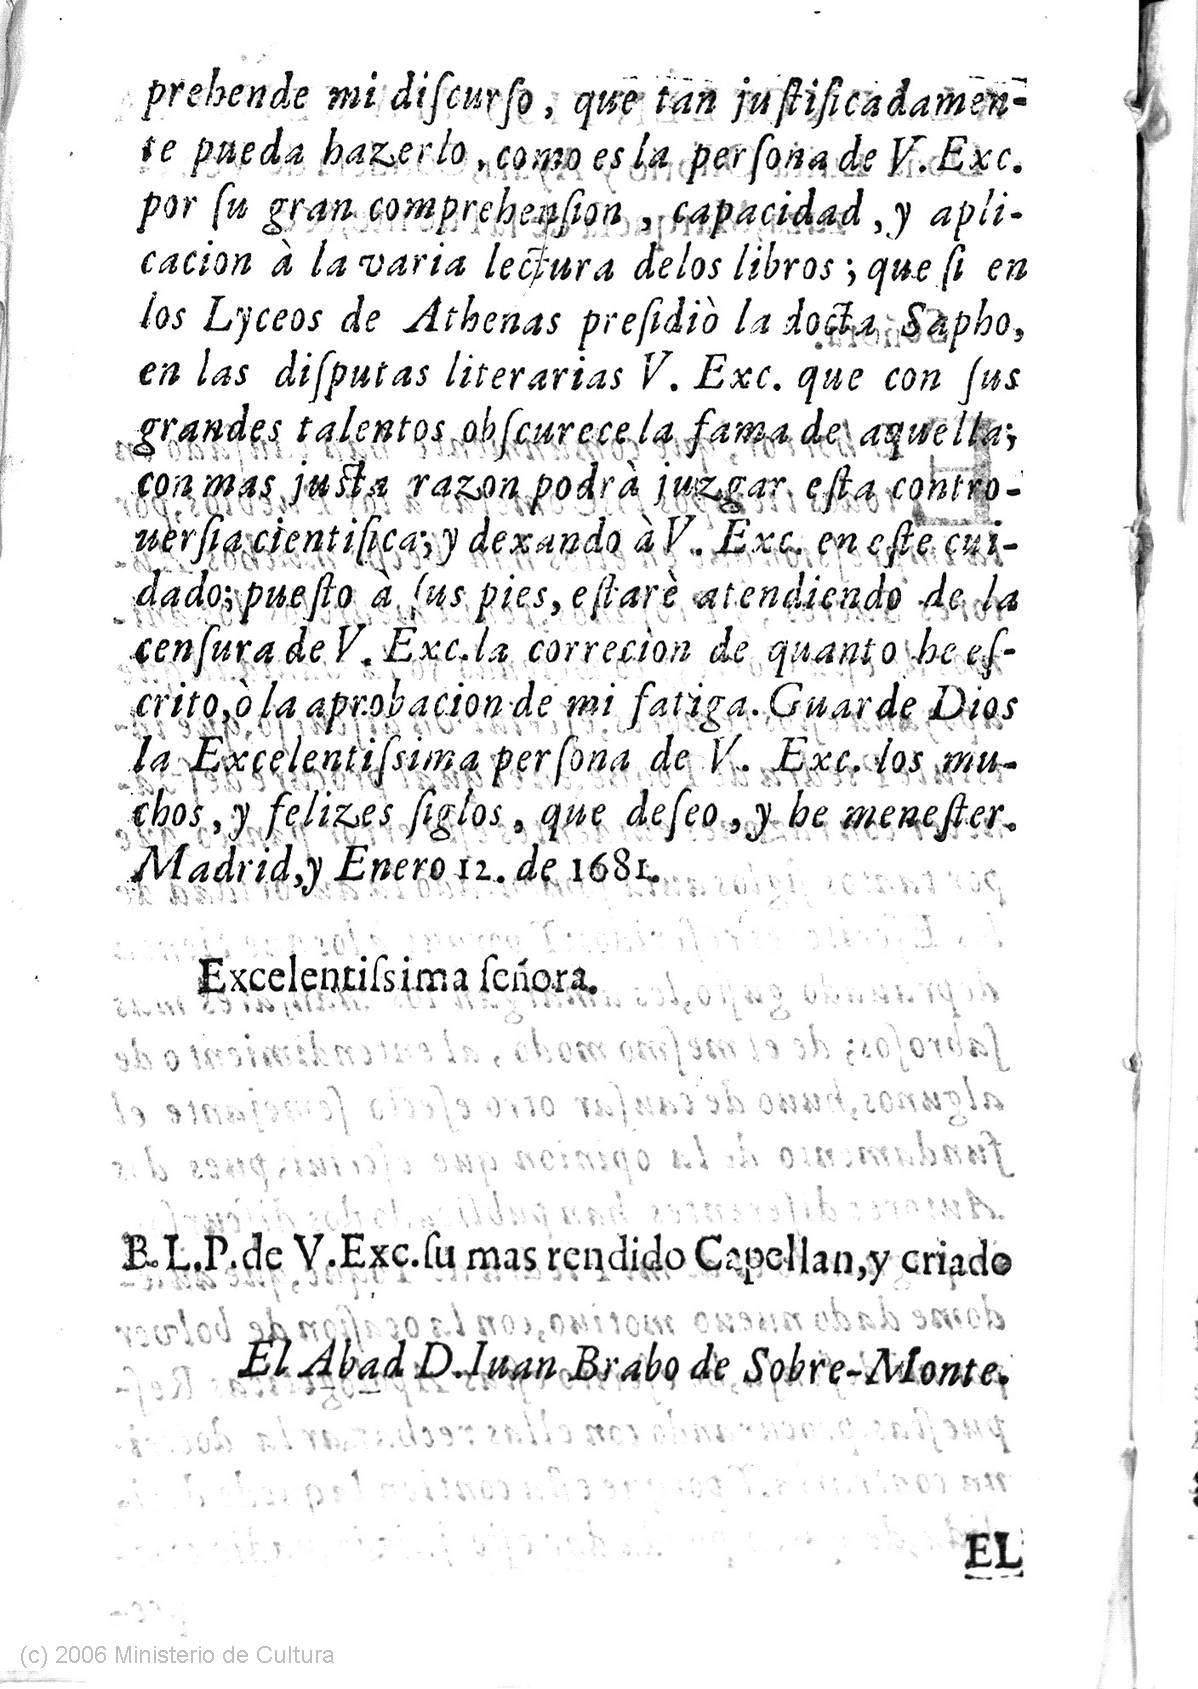 prehende mi diſcurſo, que tan juſtificadamen-
te pueda hazerlo, como es la perſona de V. Exc.
por ſu gran comprehenſion, capacidad, y apli-
cacion à la varia lectura de los libros; que ſi en
los Lyceos de Athenas preſidiò la docta Sapho,
en las diſputas literarias V. Exc. que con ſus
grandes talentos obſcurece la fama de aquella;
con mas juſta razon podrà juzgar eſta contro-
uerſia cientifica; y dexando à V. Exc. en eſte cui-
dado; pueſto à ſus pies, eſtarè atendiendo de la
cenſura de V. Exc. la correcion de quanto he eſ-
crito, ò la aprobacion de mi fatiga. Guarde Dios
la Excelentiſsima perſona de V. Exc. los mu-
chos, y felizes ſiglos, que deſeo, y he meneſter.
Madrid, y Enero 12. de 1681.
Excelentiſsima ſeñora.
B. L. P. de V. Exc. ſu mas rendido Capellan, y criado
El Abad D. Iuan Brabo de Sobre-Monte.
EL
(c) 2006 Ministerio de Cultura